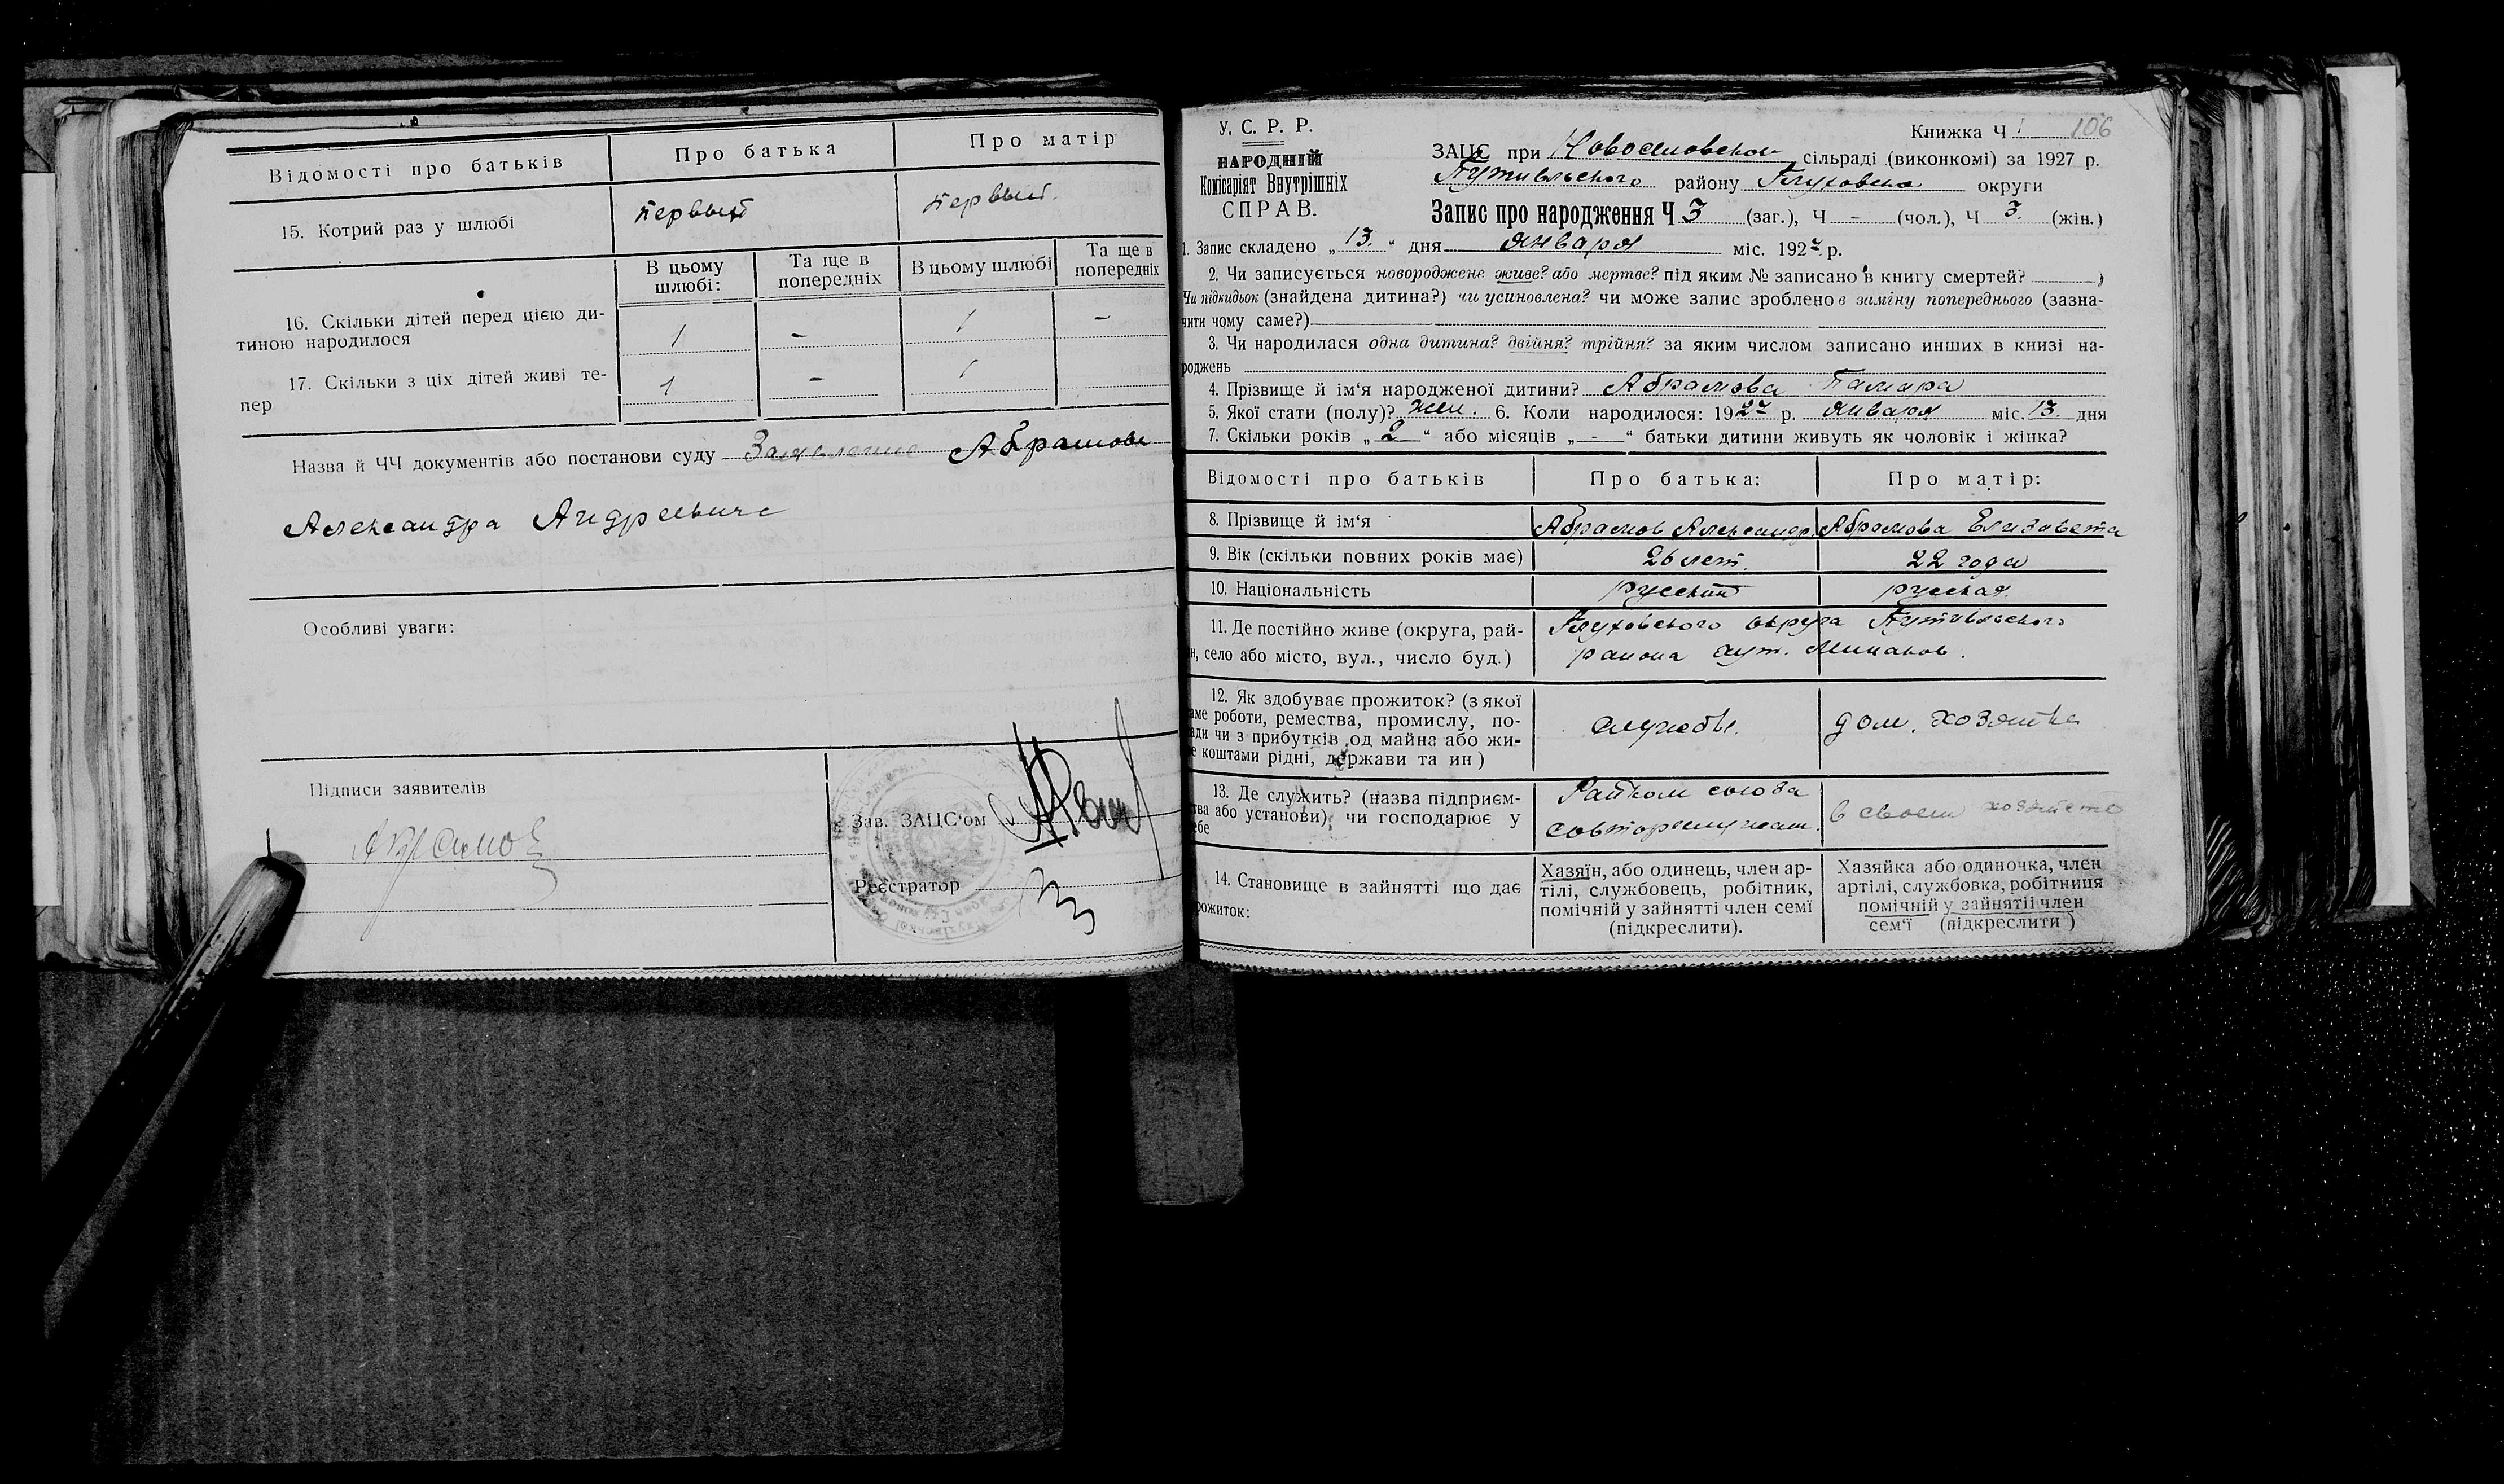 Відомості про батьків Про батька Про матір
15. Котрий раз у шлюбі первый первый.
В цьому шлюбі: Та ще в попередніх В цьому шлюбі Та ще в попередніх
16. Скільки дітей перед цією ди-
тиною народилося 1 – 1 –
17. Скільки з ціх дітей живі те-
пер 1 – 1
Назва й ЧЧ документів або постанови суду Заявление Абрамова
Александра Андреевича
Особливі уваги:
Підписи заявителів
Абрамов
Зав. ЗАЦС'ом
Реєстратор
У. С. Р. Р.
НАРОДНІЙ
Комісаріят Внутрішніх
СПРАВ.
Книжка Ч 1 106
ЗАЦС при сільраді (виконкомі) за 1927 р.
Путивльского району Глуховско округи
Запис про народження Ч 3 (заг.), Ч – (чол.), Ч 3. (жін.)
1. Запис складено „13." дня января міс. 1927 р.
2. Чи записується новороджене живе? або мертве? під яким № записано в книгу смертей? )
Чи підкидьок (знайдена дитина?) чи усиновлена? чи може запис зроблено в заміну попереднього (зазна-
чити чому саме?)
3. Чи народилася одна дитина? двійня? трійня? за яким числом записано инших в книзі на-
роджень
4. Прізвище й ім'я народженої дитини? Абрамова Тамара
5. Якої стати (полу)? жен. 6. Коли народилося: 1927 р. января міс. 13. дня
7. Скільки років „2" або місяців „-" батьки дитини живуть як чоловік і жінка?
Відомості про батьків Про батька: Про матір:
8. Прізвище й ім'я Абрамов Александр. Абрамова Елизавета
9. Вік (скільки повних років має) 26 лет. 22 года
10. Національність русский русская.
11. Де постійно живе (округа, рай- Глуховского округа Путивльского
н, село або місто, вул., число буд.) района хут. .
12. Як здобуває прожиток? (з якої
аме роботи, ремества, промислу, по-
ади чи з прибутків од майна або жи-
е коштами рідні, держави та ин) службы. дом. хозяйка
13. Де служить? (назва підприєм- Райком союза
тва або установи), чи господарює у совторгслужащ. в своем хозяйстве
ебе
14. Становище в зайнятті що дає
рожиток:
Хазяїн, або одинець, член ар-
тілі, службовець, робітник,
помічній у зайнятті член семї
(підкреслити).
Хазяйка або одиночка, член
артілі, службовка, робітниця
помічній у зайнятіі член
сем'ї (підкреслити)